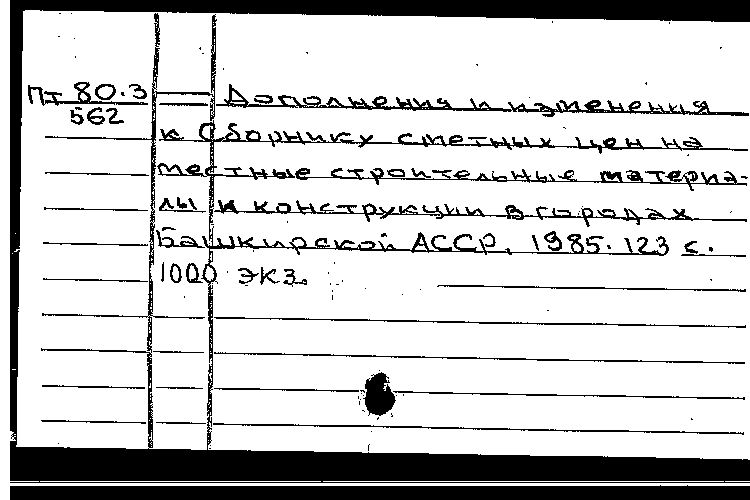 Пт 80.3 — Дополнения и изменения
562
к Сборнику сметных цен на
местные строительные материа-
лы и конструкции в городах
Башкирской АССР. 1985. 123 с.
1000 экз.